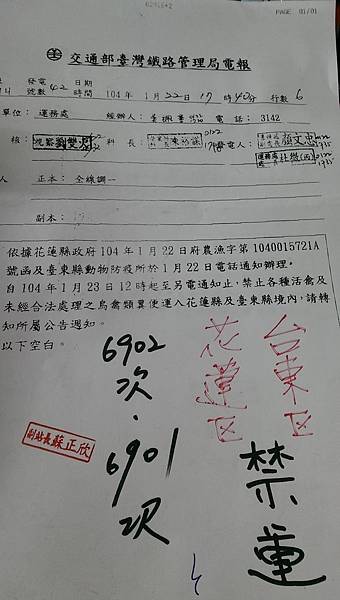 PAGE 01/01
交通部臺灣鐵路管理局電報
發電 42 日期
號數 時間 104 年 1 月 22 日 17 時 40 分 行數 6
單位: 運務處 經辦人: 電話: 3142
核: 視察劉雙火 科長: 發電人:
正本: 全線調一
副本:
依據花蓮縣政府 104 年 1 月 22 日府農漁字第 1040015721A
號函及臺東縣動物防疫所於 1 月 22 日電話通知辦理。
自 104 年 1 月 23 日 12 時起至另電通知止,禁止各種活禽及
未經合法處理之鳥禽類糞便運入花蓮縣及臺東縣境內,請轉
知所屬公告週知。
以下空白。
台東区
花蓮区
禁運
6902
次.
6901
次
副站長蘇正欣